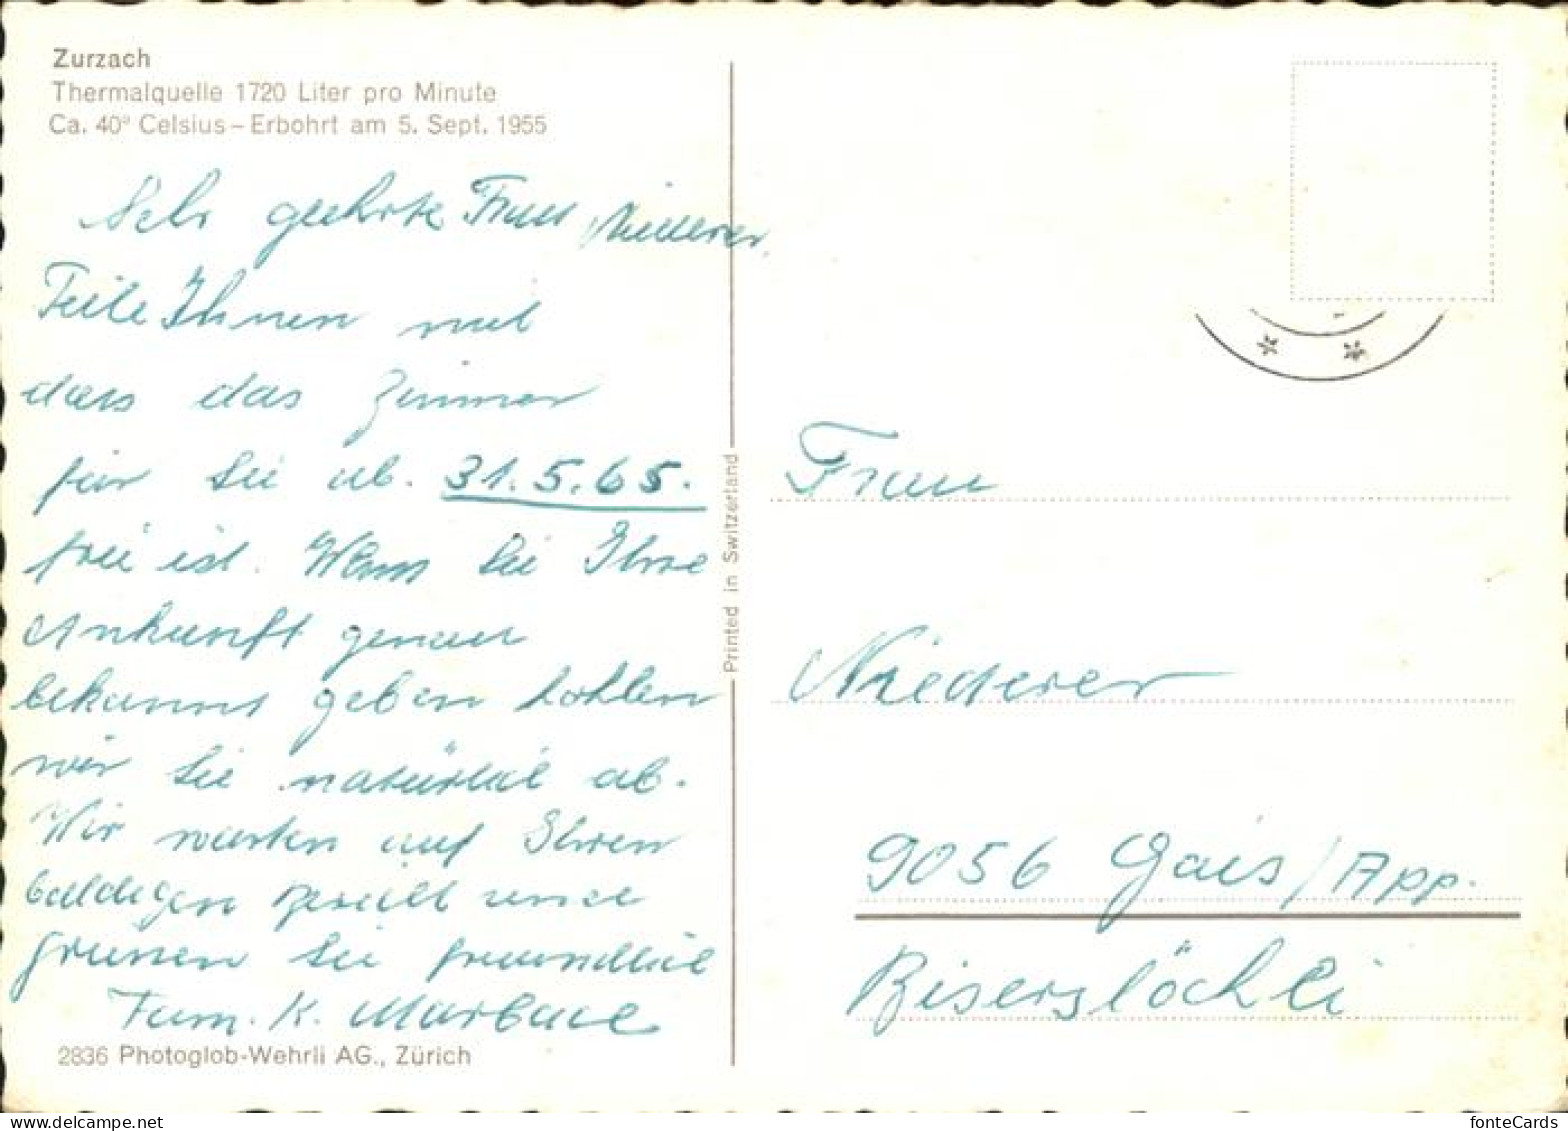 Zurzach
Thermalquelle 1720 Liter pro Minute
Ca. 40° Celsius – Erbohrt am 5. Sept. 1955
Sehr geehrte Frau Niederer,
Teile Ihnen mit
dass das Zimmer
für Sie ab. 31.5.65.
frei ist. Wenn Sie Ihre
Ankunft genau
bekannt geben hohlen
wir Sie natürlich ab.
Wir warten auf Ihren
baldigen Bericht und
grüssen Sie freundlich
Fam. K. Marbach
2836 Photoglob-Wehrli AG., Zürich
Printed in Switzerland
Frau
Niederer
9056 Gais/App.
Biserslöchli
fonteCards